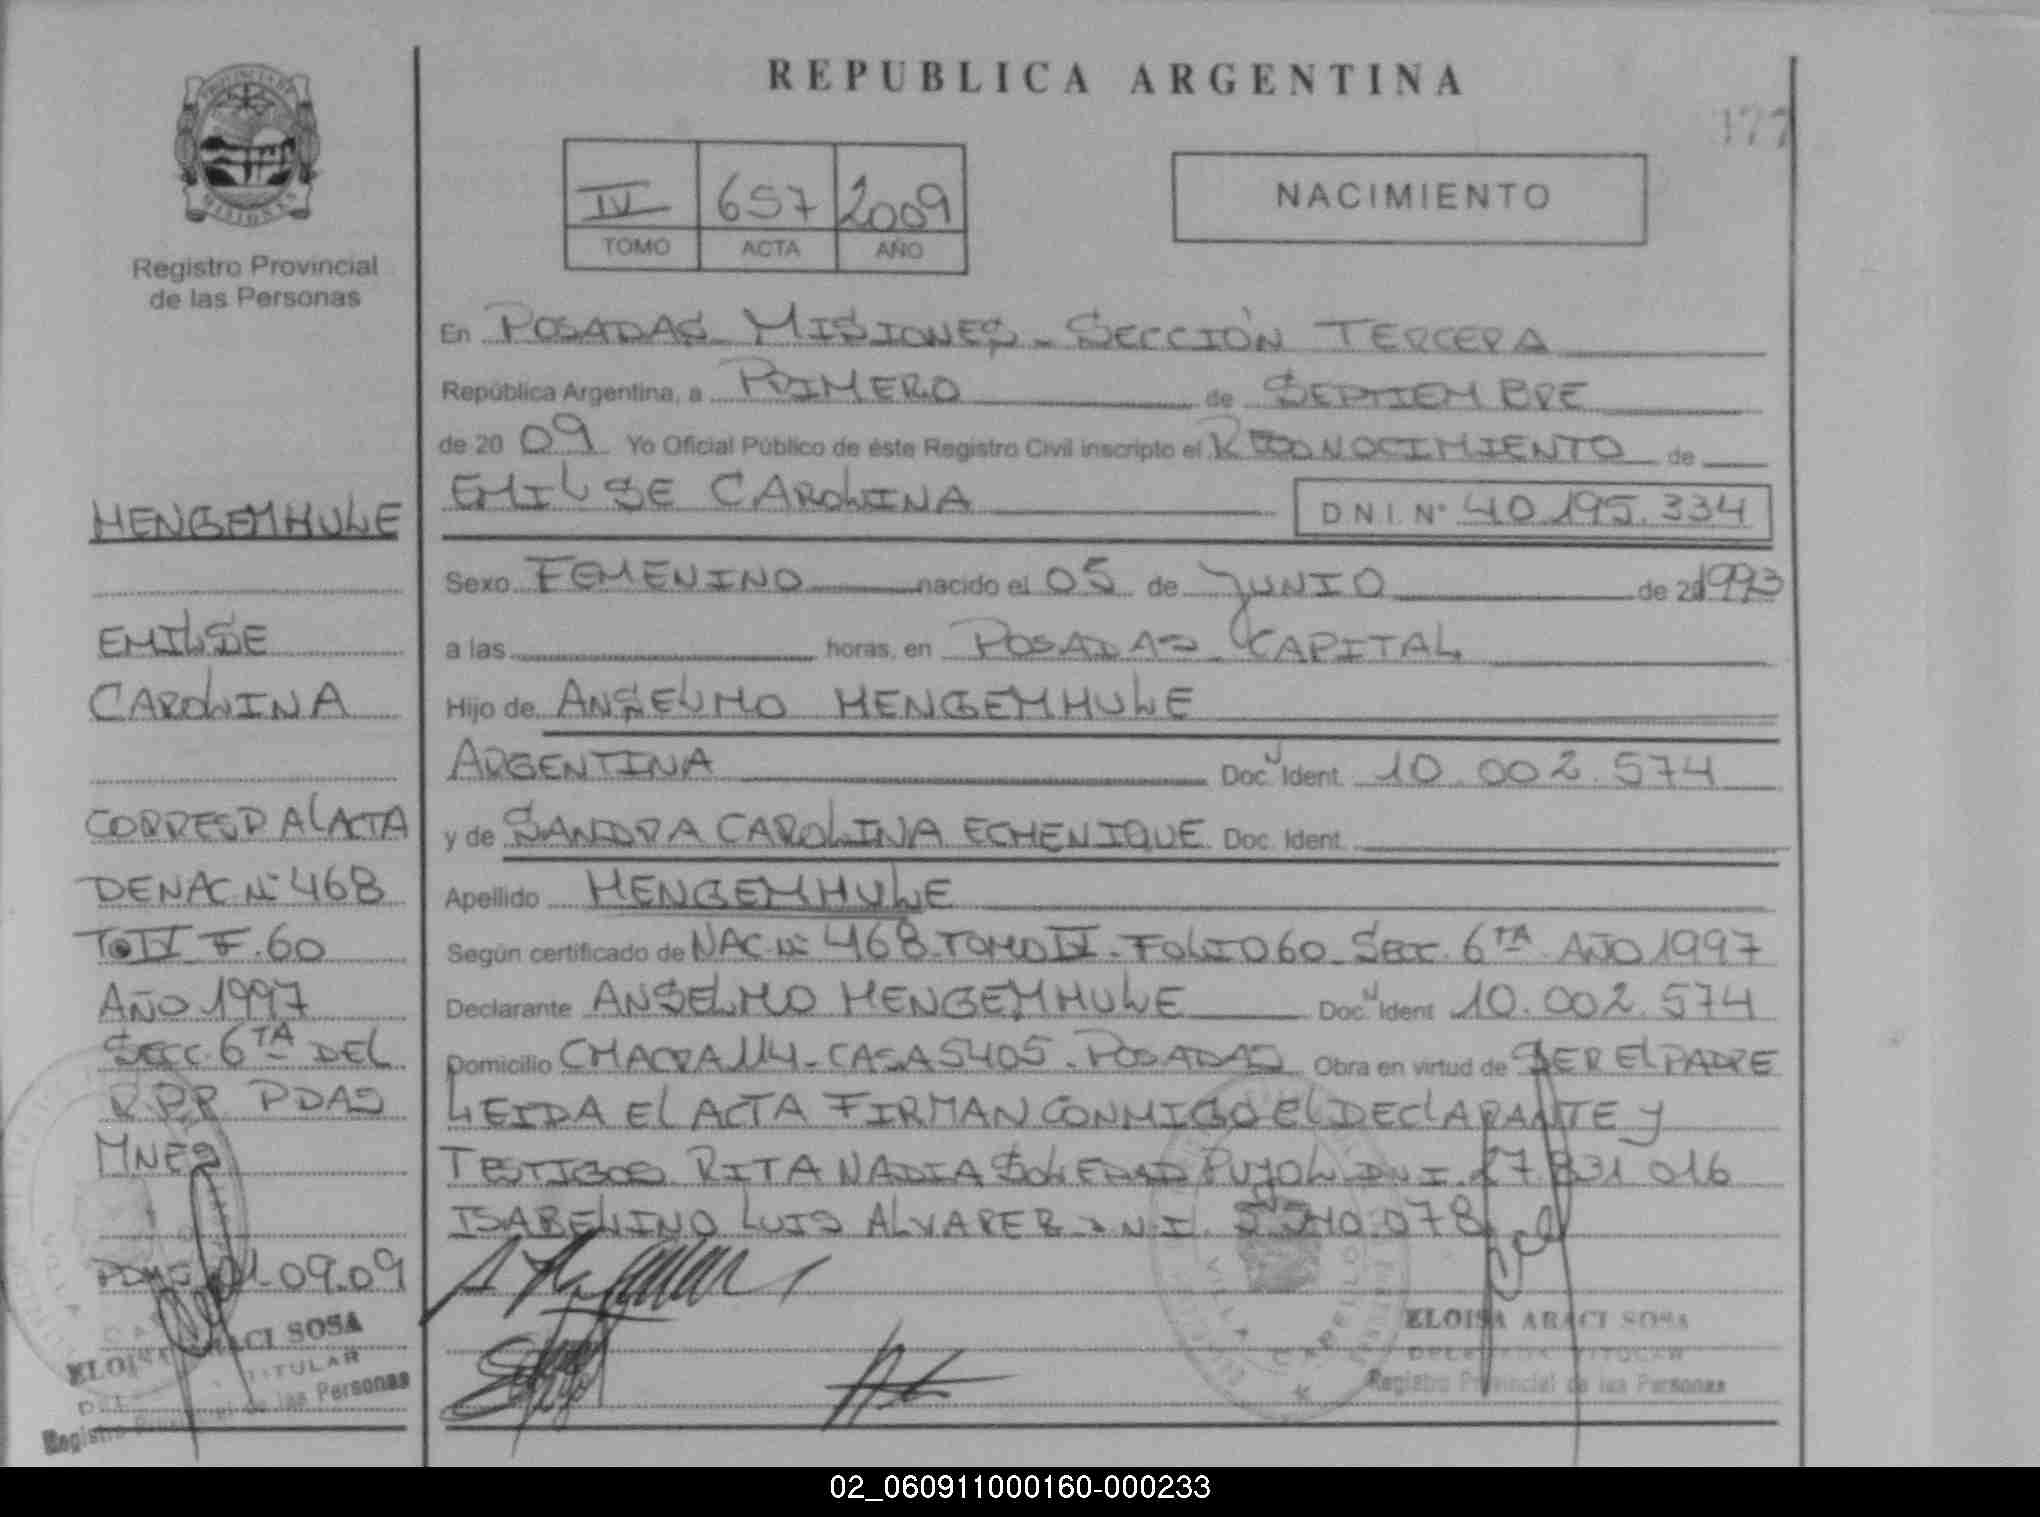 REPUBLICA ARGENTINA
177
IV 657 2009
TOMO ACTA AÑO
NACIMIENTO
MISIONES
Registro Provincial
de las Personas
HENGEMHULE
EMILSE
CAROLINA
CORRESP AL ACTA
DE NAC Nº 468
Tº IV F. 60
AÑO 1997
SECC. 6TA DEL
R.P.P. PDAS
MNES
PDAS 01.09.09
ELOISA ARACI SOSA
TITULAR
Registro Provincial de las Personas
En POSADAS MISIONES - SECCIÓN TERCERA
República Argentina, a PRIMERO de SEPTIEMBRE
de 20 09 Yo Oficial Público de éste Registro Civil inscripto el RECONOCIMIENTO de
EMILSE CAROLINA D N I. Nº 40.195.334
Sexo FEMENINO nacido el 05 de JUNIO de 1993
a las horas, en POSADAS CAPITAL
Hijo de ANSELMO HENGEMHULE
ARGENTINA Doc. Ident. 10.002.574
y de SANDRA CAROLINA ECHENIQUE Doc. Ident.
Apellido HENGEMHULE
Según certificado de NAC. Nº 468 - TOMO IV - FOLIO 60 - SECC. 6TA AÑO 1997
Declarante ANSELMO HENGEMHULE Doc. Ident 10.002.574
Domicilio CHACRA 114 - CASA 5405 - POSADAS Obra en virtud de SER EL PADRE
LEIDA EL ACTA FIRMAN CONMIGO EL DECLARANTE Y
TESTIGOS RITA NADIA SOLEDAD PUJOL D.N.I. 27.831.016
ISABELINO LUIS ALVAREZ D.N.I.
VILLA CABELLO
ELOISA ARACI SOSA
DELEGADA TITULAR
Registro Provincial de las Personas
02_060911000160-000233